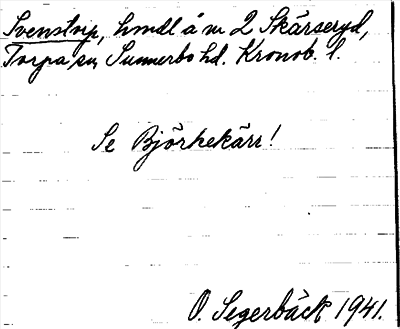 Svenstorp, hmdl å nr 2 Skärseryd,
Torpa sn, Sunnerbo hd. Kronob. l.
Se Björkekärr!
O. Segerbäck 1941.